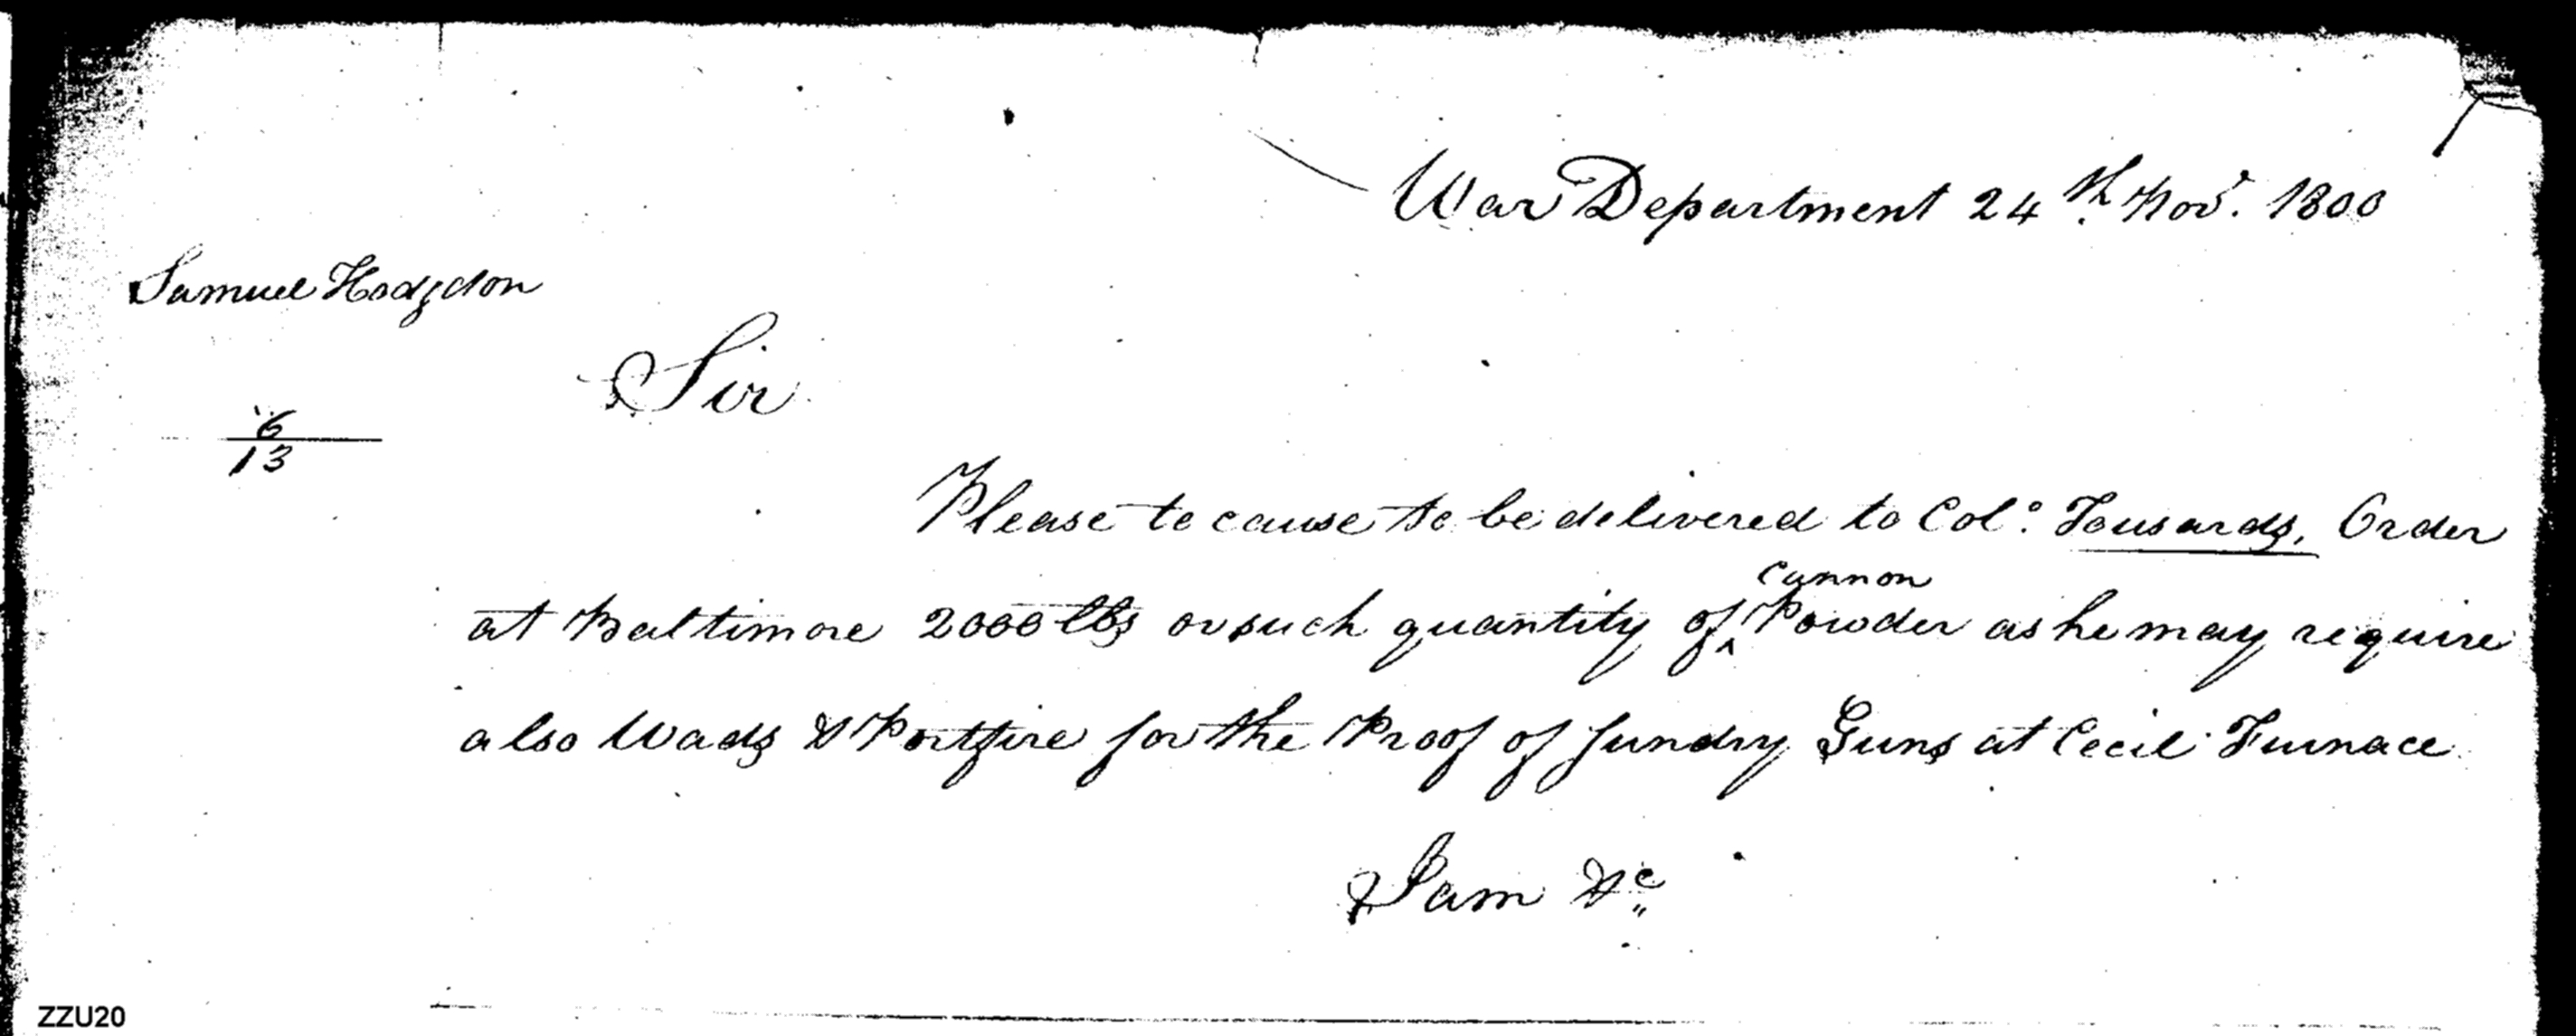 War Department 24th Nov. 1800
Samuel Hodgdon
Sir
6
13
Please to cause to be delivered to Colo. Tousards, Order
at Baltimore 2000 lbs or such quantity of ^Cannon Powder as he may require
also Wads & Portfire for the Proof of sundry Guns at Cecil Furnace
I am &c
ZZU20